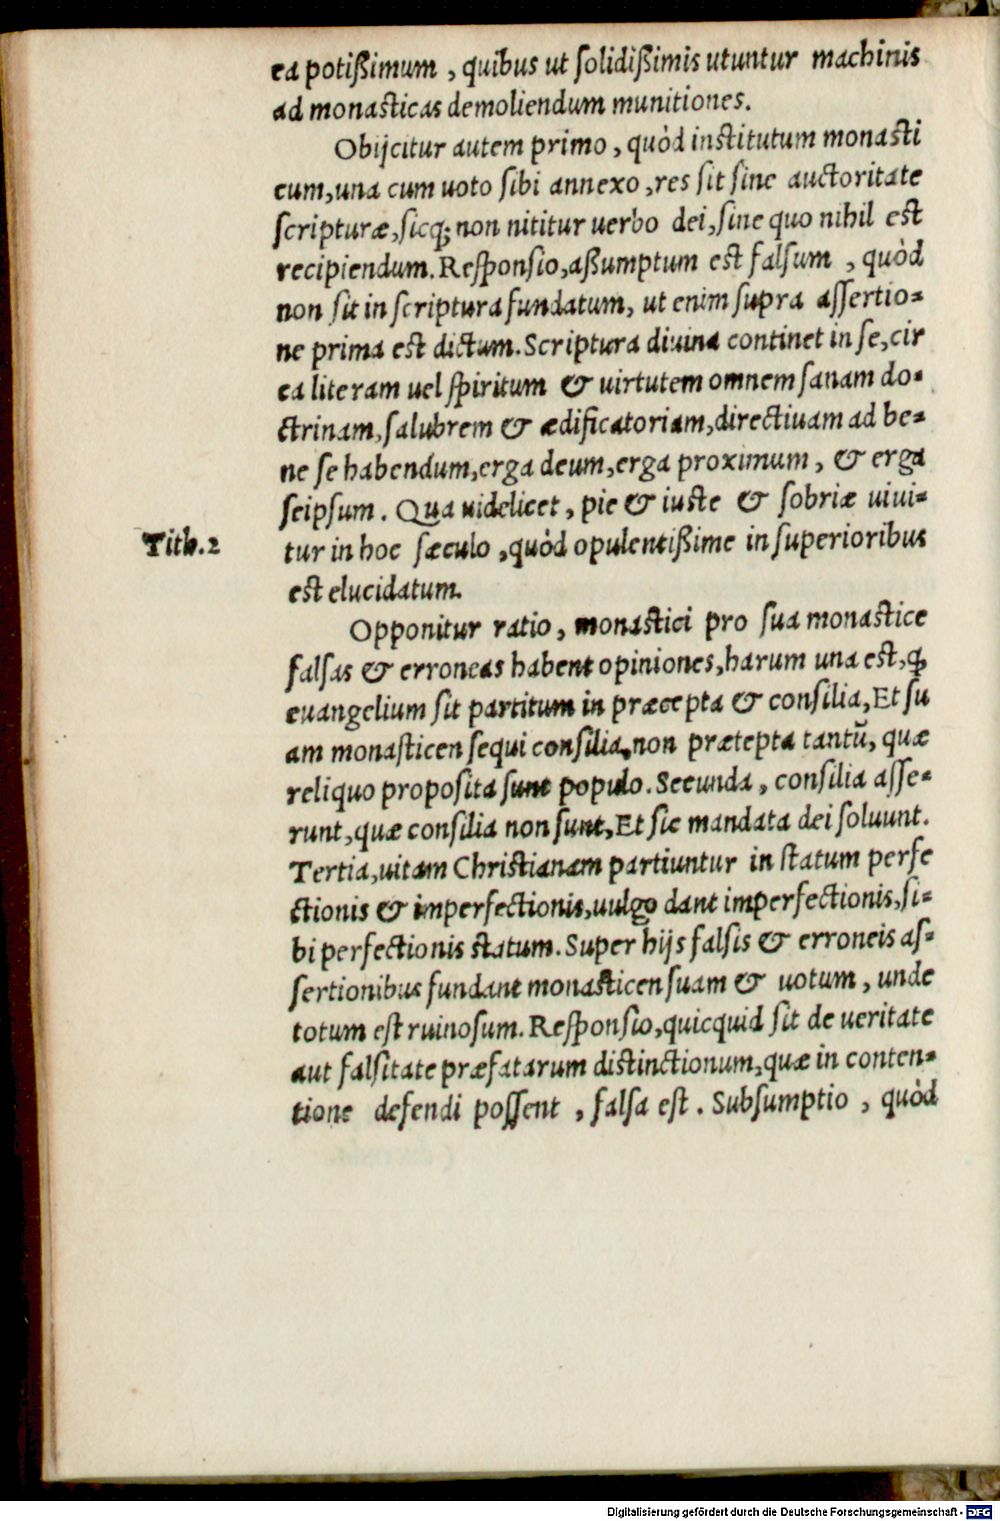 ea potißimum, quibus ut ſolidißimis utuntur machinis
ad monaſticas demoliendum munitiones.
Obijcitur autem primo, quòd inſtitutum monaſti
cum, una cum uoto ſibi annexo, res ſit ſine auctoritate
ſcripturæ, ſicq; non nititur uerbo dei, ſine quo nihil eſt
recipiendum. Reſponſio, aßumptum eſt falſum, quòd
non ſit in ſcriptura fundatum, ut enim ſupra aſſertio-
ne prima eſt dictum. Scriptura diuina continet in ſe, cir
ca literam uel ſpiritum & uirtutem omnem ſanam do-
ctrinam, ſalubrem & ædificatoriam, directiuam ad be-
ne ſe habendum, erga deum, erga proximum, & erga
ſeipſum. Qua uidelicet, pie & iuſte & ſobriæ uiui-
Tith. 2
tur in hoc ſæculo, quòd opulentißime in ſuperioribus
eſt elucidatum.
Opponitur ratio, monaſtici pro ſua monaſtice
falſas & erroneas habent opiniones, harum una eſt, ꝙ
euangelium ſit partitum in præcepta & conſilia, Et ſu
am monaſticen ſequi conſilia, non prætepta tantũ, quæ
reliquo propoſita ſunt populo. Secunda, conſilia aſſe-
runt, quæ conſilia non ſunt, Et ſic mandata dei ſoluunt.
Tertia, uitam Chriſtianam partiuntur in ſtatum perfe
ctionis & imperfectionis, uulgo dant imperfectionis, ſi-
bi perfectionis ſtatum. Super hijs falſis & erroneis aſ-
ſertionibus fundant monaſticen ſuam & uotum, unde
totum eſt ruinoſum. Reſponſio, quicquid ſit de ueritate
aut falſitate præfatarum diſtinctionum, quæ in conten-
tione defendi poſſent, falſa eſt. Subſumptio, quòd
Digitalisierung gefördert durch die Deutsche Forschungsgemeinschaft - DFG